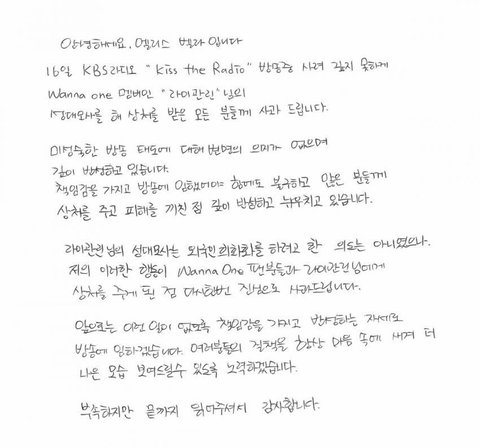 안녕하세요. 멜리스 벨라 입니다
16일 KBS라디오 "Kiss the Radio" 방송중 사려 깊지 못하게
Wanna one 멤버인 "라이관린"님의
성대모사를 해 상처를 받은 모든 분들께 사과 드립니다.
미성숙한 방송 태도에 대해 변명의 의미가 없으며
깊이 반성하고 있습니다.
책임감을 가지고 방송에 임했어야 함에도 불구하고 많은 분들께
상처를 주고 피해를 끼친 점 깊이 반성하고 뉘우치고 있습니다.
라이관린님의 성대모사는 외국인 희화화를 하려고 한 의도는 아니였으나.
저의 이러한 행동이 Wanna One 팬분들과 라이관린님에게
상처를 주게 된 점 다시한번 진심으로 사과드립니다.
앞으로는 이런 일이 없도록 책임감을 가지고 반성하는 자세로
방송에 임하겠습니다. 여러분들의 질책을 항상 마음 속에 새겨 더
나은 모습 보여드릴수 있도록 노력하겠습니다.
부족하지만 끝까지 읽어주셔서 감사합니다.